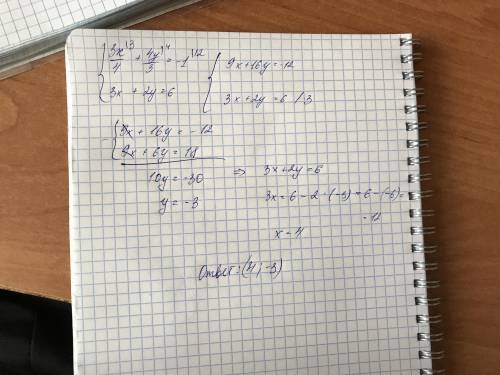 { 3x/4 |3 + 4y/3 |4 = -1 |12
3x + 2y = 6
{ 9x + 16y = -12
3x + 2y = 6 /·3
- { 9x + 16y = -12
9x + 6y = 18
10y = -30
y = -3
⇒ 3x + 2y = 6
3x = 6 - 2·(-3) = 6 - (-6) =
12
x = 4
Ответ: (4; -3)